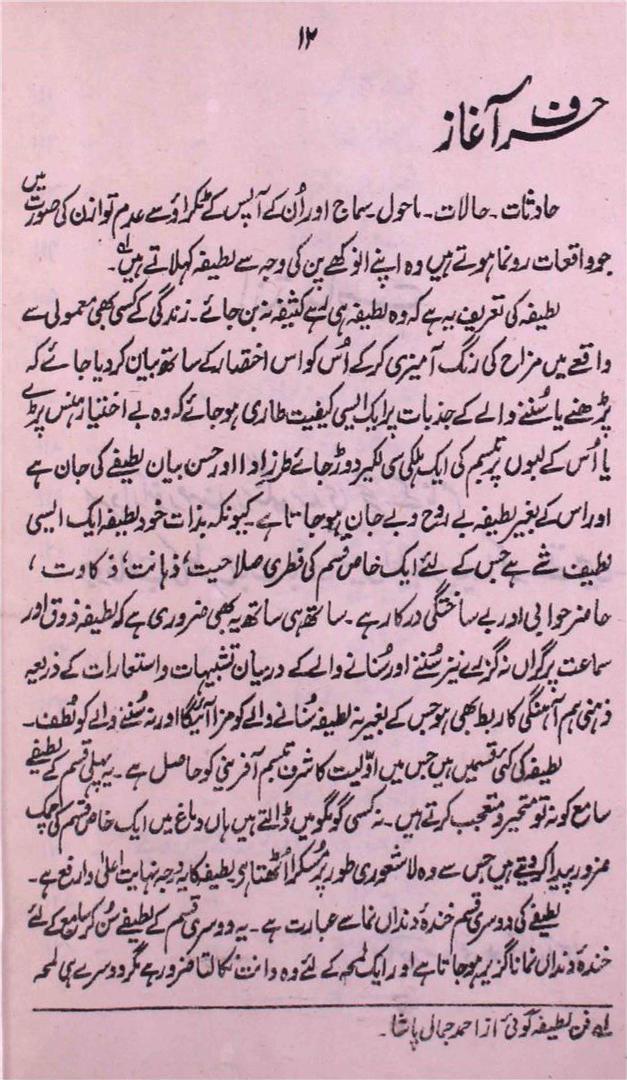 ۱۲
حرف آغاز
حادثات۔ حالات۔ ماحول۔ سماج اور اُن کے آپس کے ٹکراؤ سے عدم توازن کی صورت میں
جو واقعات رونما ہوتے ہیں وہ اپنے انوکھے پن کی وجہ سے لطیفہ کہلاتے ہیں ؎۱۔
لطیفہ کی تعریف یہ ہے کہ وہ لطیفہ ہی رہے کثیفہ نہ بن جائے۔ زندگی کے کسی بھی معمولی سے
واقعے میں مزاح کی رنگ آمیزی کرکے اُس کو اس اختصار کے ساتھ بیان کردیا جائے کہ
پڑھنے یا سُننے والے کے جذبات پر ایک ایسی کیفیت طاری ہوجائے کہ وہ بے اختیار ہنس پڑے
یا اُس کے لبوں پر تبسم کی ایک ہلکی سی لکیر دوڑ جائے طرزِ ادا اور حسن بیان لطیفے کی جان ہے
اور اس کے بغیر لطیفہ بے روح و بے جان ہوجاتا ہے۔ کیونکہ بذات خود لطیفہ ایک ایسی
لطیف شے ہے جس کے لئے ایک خاص قسم کی فطری صلاحیت، ذہانت، ذکاوت،
حاضر جوابی اور بے ساختگی درکار ہے۔ ساتھ ہی ساتھ یہ بھی ضروری ہے کہ لطیفہ ذوق اور
سماعت پر گراں نہ گزرے نیز سُننے اور سُنانے والے کے درمیان تشبیہات و استعارات کے ذریعہ
ذہنی ہم آہنگی کا ربط بھی ہو جس کے بغیر نہ لطیفہ سُنانے والے کو مزا آئیگا اور نہ سُننے والے کو لُطف۔
لطیفہ کی کئی قسمیں ہیں جس میں اوّلیت کا شرف تبسم آفرینی کو حاصل ہے۔ یہ پہلی قسم کے لطیفے
سامع کو نہ تو متحیر و متعجب کرتے ہیں۔ نہ کسی گومگو میں ڈالتے ہیں ہاں دماغ میں ایک خاص قسم کی چمک
ضرور پیدا کردیتے ہیں جس سے وہ لاشعوری طور پر مُسکرا اُٹھتا ہے لطیفہ کا یہ درجہ نہایت اعلیٰ و ارفع ہے۔
لطیفے کی دوسری قسم خندۂ دنداں نما سے عبارت ہے۔ یہ دوسری قسم کے لطیفے سُن کر سامع کے لئے
خندۂ دنداں نما ناگزیر ہوجاتا ہے اور ایک لمحہ کے لئے وہ دانت نکالتا ضرور ہے مگر دوسرے ہی لمحہ
؎۱ فن لطیفہ گوئی۔ از احمد جمال پاشا۔